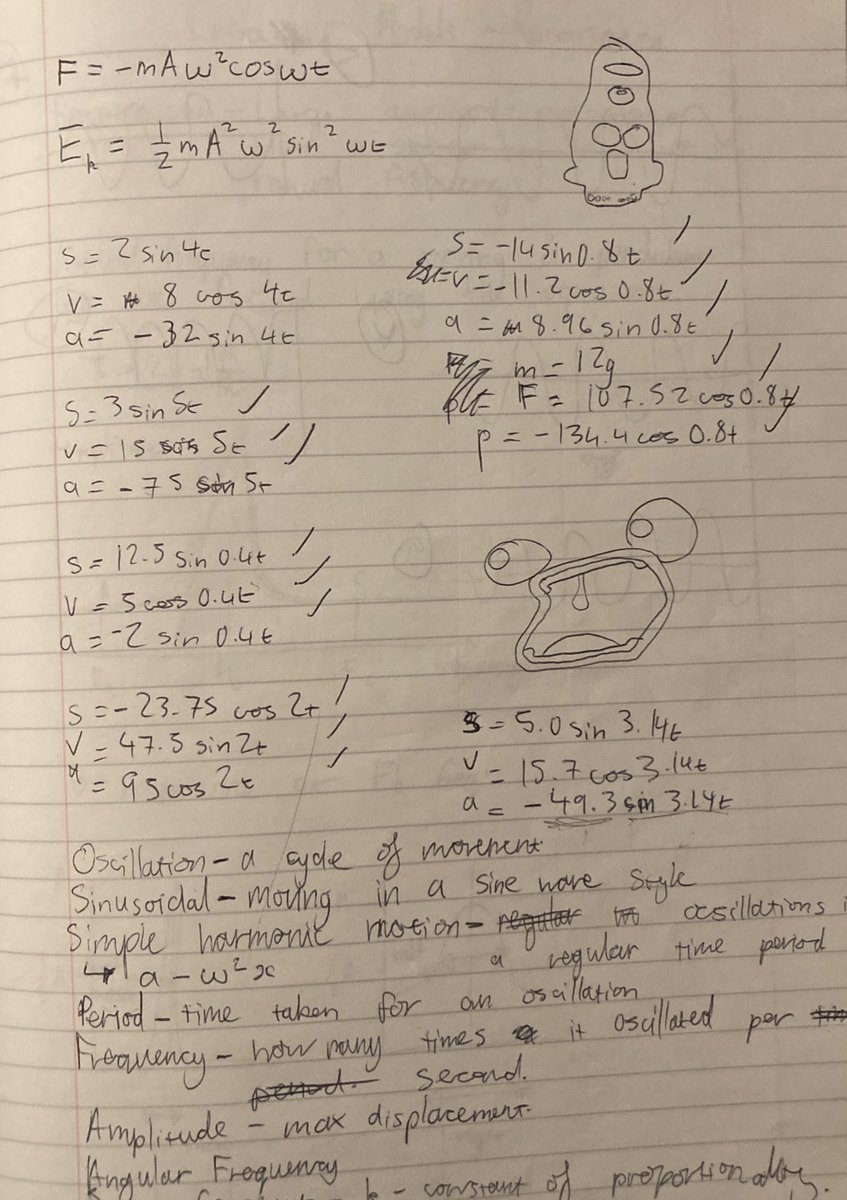 F = -mAω²cosωt
Eₖ = ½mA²ω²sin²ωt
s = 2 sin 4t
v = 8 cos 4t
a = - 32 sin 4t
s = 3 sin 5t
v = 15 cos 5t
a = - 75 sin 5t
s = 12.5 sin 0.4t
v = 5 cos 0.4t
a = -2 sin 0.4t
s = - 23.75 cos 2t
v = 47.5 sin 2t
a = 95 cos 2t
s = -14 sin 0.8t
v = -11.2 cos 0.8t
a = 8.96 sin 0.8t
m = 12g
F = 107.52 cos 0.8t
p = -134.4 cos 0.8t
s = 5.0 sin 3.14t
v = 15.7 cos 3.14t
a = - 49.3 sin 3.14t
Oscillation - a cycle of movement.
Sinusoidal - moving in a sine wave style
Simple harmonic motion - regular oscillations
↳ a - ω²x a regular time period
Period - time taken for an oscillation
Frequency - how many times it oscillated per
period. second.
Amplitude - max displacement.
Angular Frequency
k - constant of proportionality.